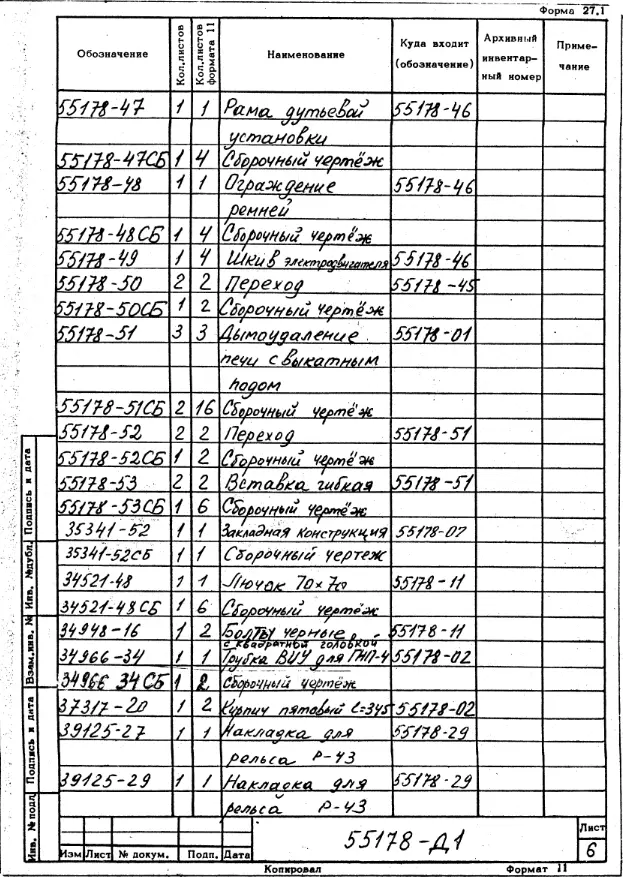 Форма 27.1
Обозначение Кол.листов Кол.листов формата 11 Наименование Куда входит (обозначение) Архивный инвентар-ный номер Приме-чание
55178-47 1 1 Рама дутьевой 55178-46
установки
55178-47СБ 1 4 Сборочный чертёж
55178-48 1 1 Ограждение 55178-46
ремней
55178-48СБ 1 4 Сборочный чертёж
55178-49 1 4 Шкив электродвигателя 55178-46
55178-50 2 2 Переход 55178-45
55178-50СБ 1 2 Сборочный чертёж
55178-51 3 3 Дымоудаление 55178-01
печи с выкатным
подом
55178-51СБ 2 16 Сборочный чертёж
55178-52 2 2 Переход 55178-51
55178-52СБ 1 2 Сборочный чертёж
55178-53 2 2 Вставка гибкая 55178-51
55178-53СБ 1 6 Сборочный чертёж
35341-52 1 1 Закладная конструкция 55178-07
35341-52СБ 1 1 Сборочный чертеж
34521-48 1 1 Лючок 70×70 55178-11
34521-48СБ 1 6 Сборочный чертёж
34948-16 1 2 Болты черные 55178-11
с квадратной головкой
34966-34 1 1 Трубка ВИУ для ГНП-4 55178-02
34966 34СБ 1 2 Сборочный чертёж
37317-20 1 2 Кирпич пятовый ℓ=345 55178-02
39125-27 1 1 Накладка для 55178-29
рельса Р-43
39125-29 1 1 Накладка для 55178-29
рельса Р-43
Инв. № подл. Подпись и дата Взам.инв. № Инв. №дубл. Подпись и дата
55178-Д1
Лист
6
Изм Лист № докум. Подп. Дата
Копировал Формат 11